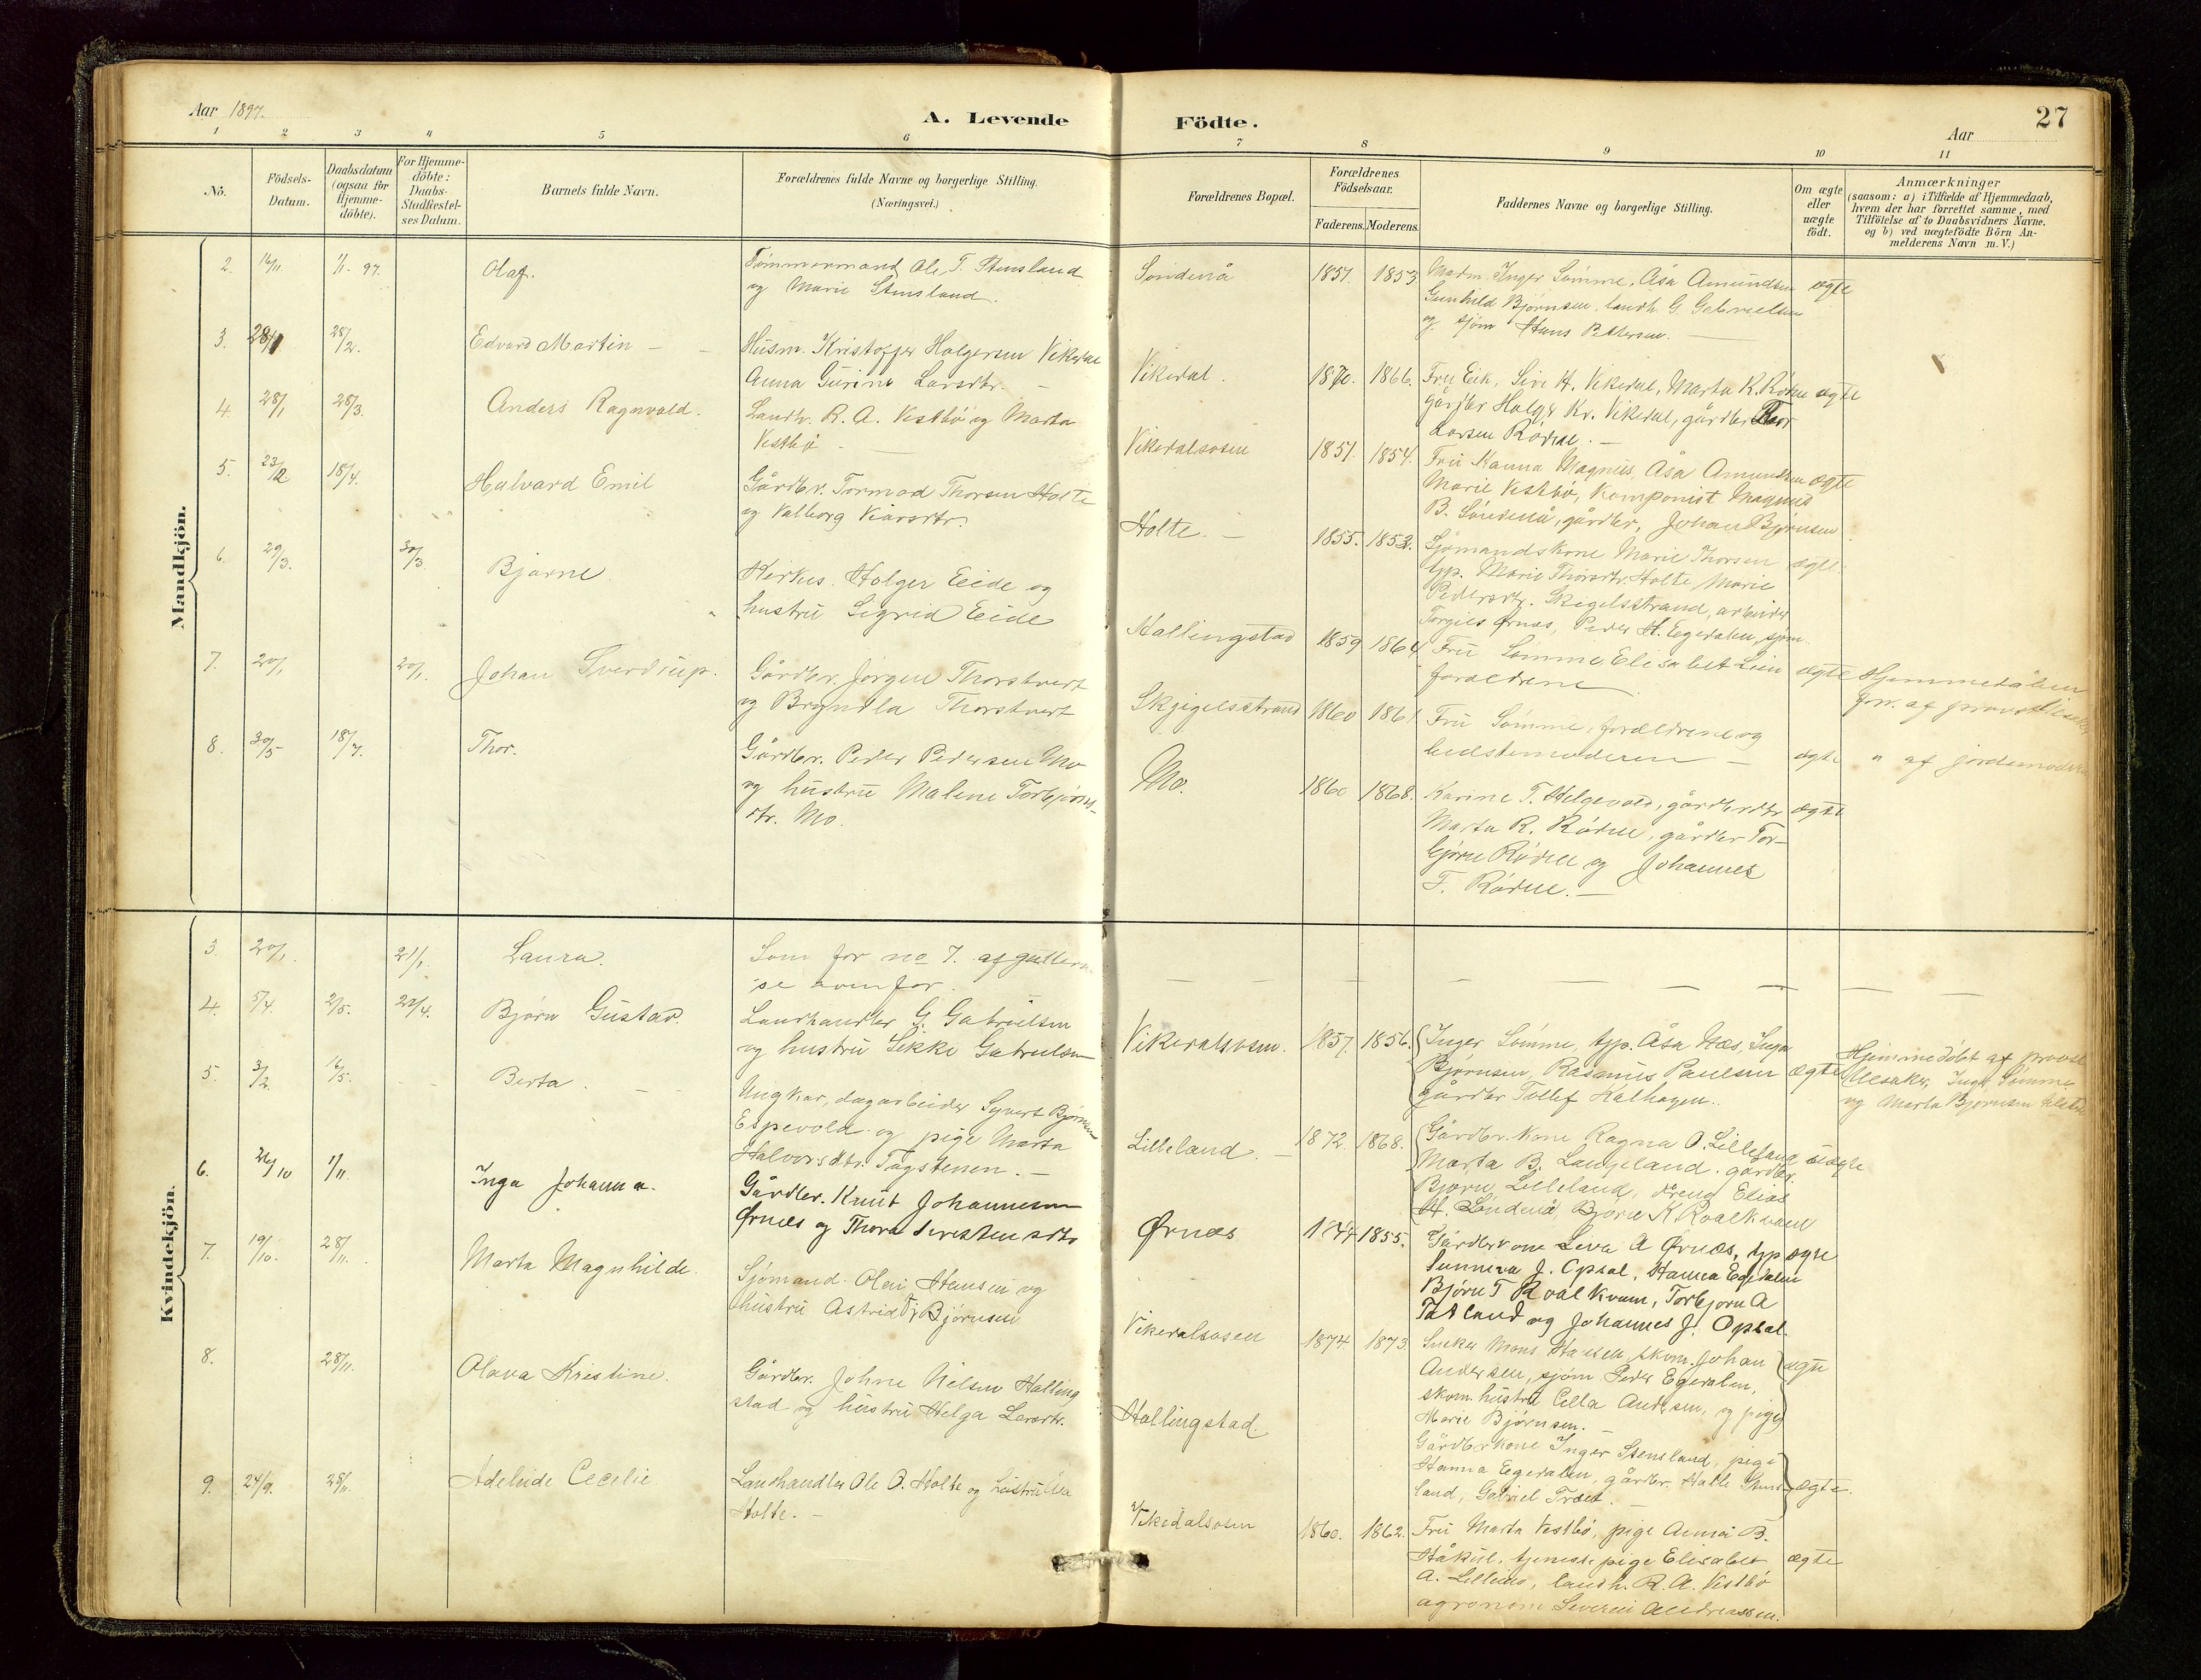 Aar 1897.
A. Levende Födte.
27
Aar
1 2 3 4 5 6 7 8 9 10 11
No.
Födsels-Datum.
Daabsdatum (ogsaa for Hjemme-döbte).
For Hjemme-döbte: Daabs-Stadfæstel-ses Datum.
Barnets fulde Navn.
Forældrenes fulde Navne og borgerlige Stilling. (Næringsvei.)
Forældrenes Bopæl.
Forældrenes Födselsaar.
Faderens. Moderens.
Faddernes Navne og borgerlige Stilling.
Om ægte eller uægte födt.
Anmærkninger
(saasom: a) i Tilfælde af Hjemmedaab,
hvem der har forrettet samme, med
Tilföielse af to Daabsvidners Navne.
og b) ved uægtefödte Börn An-
melderens Navn m. V.)
Mandkjön.
2. 16/11 1/1. 97. Olaf.
Tømmermand Ole T. Stensland
og Marie Stensland.
Søndenå 1851. 1853
Madm. Inger Sømme, Åsa Amundsen ægte
Gunhild Bjørnsen, landh. G. Gabrielsen
og sjøm Hans Pettersen.
3. 28/1 28/2. Edvard Martin
Husm. Kristoffer Holgersen Vikedal
Anna Gurine Larsdtr.
Vikedal. 1870. 1866.
Fru Eik, Sive H. Vikedal, Marta K. Rødne ægte
gårdbr Holger Kr. Vikedal, gårdbr
Larsen Rødne.
4 28/1 28/3. Anders Ragnvald.
Landh. R. A. Vestbø og Marta
Vestbø
Vikedalsosen 1851. 1854.
Fru Hanna Magnus, Åsa Amundsen ægte
Marie Vestbø, Komponist Magnus
B. Søndenå, gårdbr. Johan Bjørnsen
5. 23/12 18/4. Halvard Emil
Gårdbr. Tormod Thorsen Holte
og Valborg Kiarsdtr.
Holte. 1855. 1853.
Sjømandskone Marie Thorsen ægte
typ. Marie Thorsdtr. Holte, Marie
Pedersdtr. Skigelsstrand, arbeider
Torgies Ørnæs, Peder H. Egedalen, sjøm.
6. 29/3. 30/3. Bjarne
Kirkes. Holger Eide og
hustru Sigrid Eide
Hallingstad 1859 1864
Fru Sømme, Elisabet Lien ægte
forældrene
Hjemmedåben
forr. af provst
7. 20/1 20/1. Johan Sverdrup.
Gårdbr. Jørgen Thorstvert
og Bryndla Thorstvert
Skjigelsstrand 1860 1861
Fru Sømme, forældrene og
bedstemoderen ægte
" af jordemoder
8. 30/5 18/7. Thor.
Gårdbr. Peder Pedersen Mo
og hustru Malene Torbjørns-
dtr. Mo.
Mo. 1860 1868.
Karine T. Helgevold, gårdbrdtr ægte
Marta R. Rødne, gårdbr Tor-
bjørn Rødne og Johannes
T. Rødne.
Kvindekjön.
3 20/1. 21/1. Laura.
Som for no 7. af guttene
se ovenfor.
4. 5/4. 2/5. 22/4. Bjørn Gustav.
Landhandler G. Gabrielsen
og hustru Sikke Gabrielsen
Vikedalsosen. 1857. 1856.
Inger Sømme, typ. Åsa Næs, Inga
Bjørnsen, Rasmus Paulsen ægte
gårdbr Tollef Kalhagen.
Hjemmedøbt af provst
Inger Sømme
og Marta Bjørnsen
5. 3/2. 16/5. Berta.
Ungkar, dagarbeider Syvert Bjørnsen
Espevold og pige Marta
Halvorsdtr. Tågstenen.
Lilleland. 1872. 1868.
Gårdbr. kone Ragna O. Lilleland uægte
Marta B. Langeland, gårdbr.
Bjørn Lilleland, dreng Elias
H. Søndenå Bjørn K. Roalkvam
6. 26/10 1/11. Inga Johanna.
Gårdbr. Knut Johannesen
Ørnæs og Thora Sivestensdtr
Ørnæs 1844 1855.
Gårdbrkone Siva A Ørnæs, typ ægte
Sunneva J. Opsal, Hanna Egedalen
Bjørn T Roalkvam, Torbjørn A
Tatland og Johannes J. Opsal.
7. 19/10. 28/11. Marta Magnhilde.
Sjømand Olai Hansen og
hustru Astrid T. Bjørnsen
Vikedalsosen 1874. 1873.
Snekker Mons Hansen, skom. Johan ægte
Andersen, sjøm. Peder Egedalen,
skom. hustru Cella Andersen, og pige
Marie Bjørnsen.
8. 28/11. Olava Kristine.
Gårdbr. Johne Nilsen Halling
stad og hustru Helga Larsdtr.
Hallingstad.
Gårdbrkone Inger Stensland, pige
Hanna Egedalen, gårdbr. Halle Stens- ægte.
land, Gabriel Træet.
9. 24/9. 28/11. Adeleide Cecelie
Landhandler Ole O. Holte og hustru
Holte.
Vikedalsosen 1860. 1862.
Fru Marta Vestbø, pige Anna B.
Håkul, tjenestepige Elisabet ægte
A. Lilleland, landh. R. A. Vestbø
agronom Severin Andreassen.